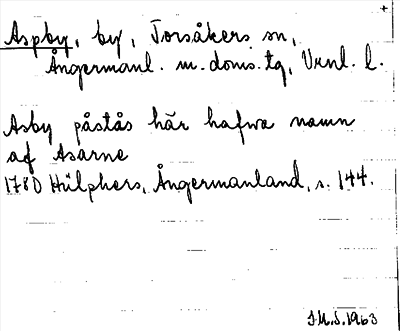 +
Aspby, by, Torsåkers sn,
Ångermanl. m. doms. tg, Vrnl. l.
Asby påstås här hafwa namn
af Asarne
1780 Hülphers, Ångermanland, s. 144.
J.M.S. 1963